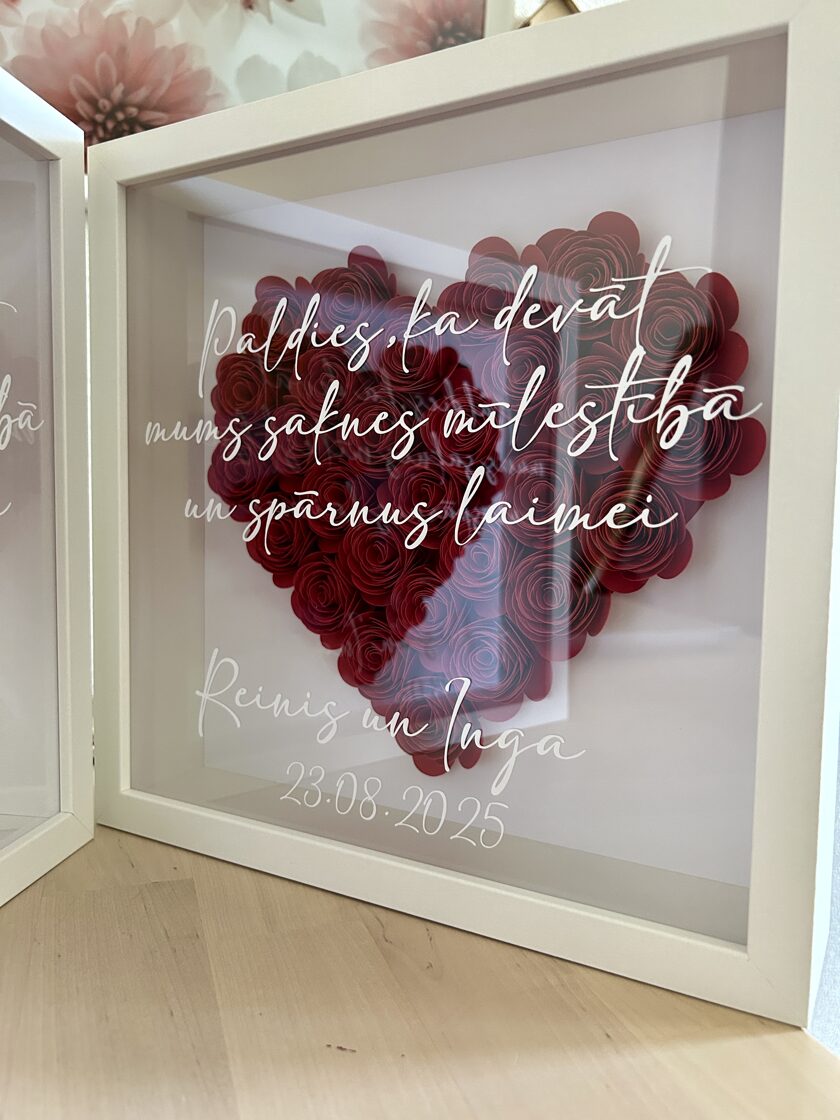 Paldies, ka devāt
mums saknes mīlestībā
un spārnus laimei
Reinis un Inga
23.08.2025
bā